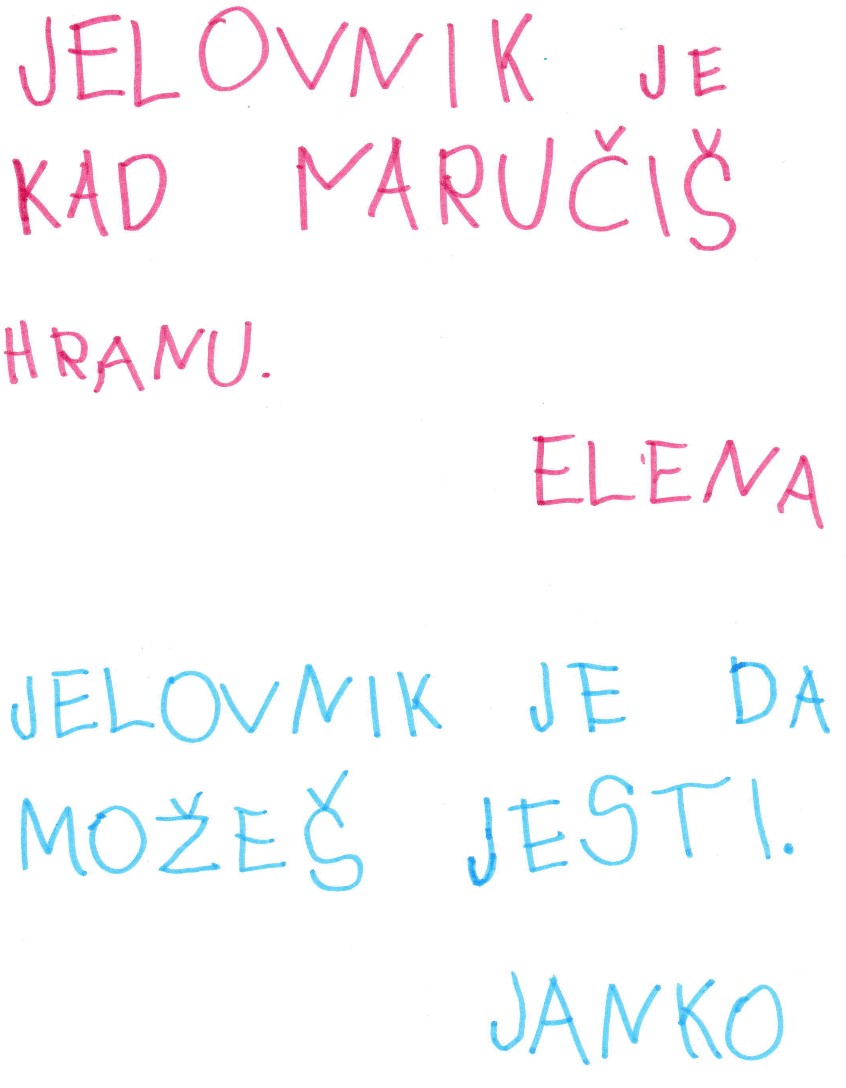 JELOVNIK JE
KAD NARUČIŠ
HRANU.
ELENA
JELOVNIK JE DA
MOŽEŠ JESTI.
JANKO